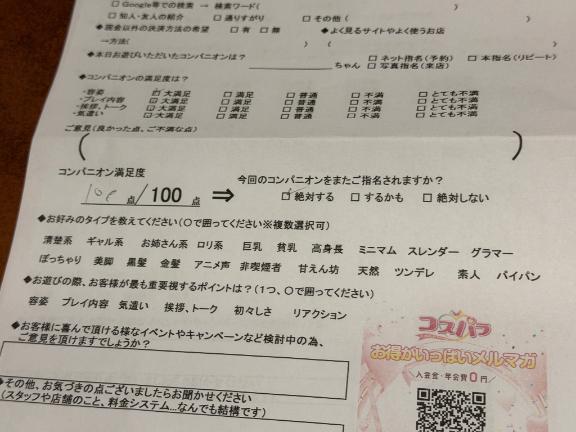 □Google等での検索 → 検索ワード( )
□知人・友人の紹介 □通りすがり □その他(
◆現金以外の決済方法の希望 □有 □無 ◆よく見るサイトやよく使うお店
→方法( ) ( )
◆本日お遊びいただいたコンパニオンは? □ネット指名(予約) □本指名(リピート)
ちゃん □写真指名(来店)
◆コンパニオンの満足度は?
・容姿 □大満足 □満足 □普通 □不満 □とても不満
・プレイ内容 □大満足 □満足 □普通 □不満 □とても不満
・挨拶、トーク □大満足 □満足 □普通 □不満 □とても不満
・気遣い □大満足 □満足 □普通 □不満 □とても不満
ご意見(良かった点、ご不満な点)
( )
コンパニオン満足度 今回のコンパニオンをまたご指名されますか?
100 点/100 点 ⇒ □絶対する □するかも □絶対しない
◆お好みのタイプを教えてください(○で囲ってください※複数選択可)
清楚系 ギャル系 お姉さん系 ロリ系 巨乳 貧乳 高身長 ミニマム スレンダー グラマー
ぽっちゃり 美脚 黒髪 金髪 アニメ声 非喫煙者 甘えん坊 天然 ツンデレ 素人 パイパン
◆お遊びの際、お客様が最も重要視するポイントは?(1つ、○で囲ってください)
容姿 プレイ内容 気遣い 挨拶、トーク 初々しさ リアクション
◆お客様に喜んで頂ける様なイベントやキャンペーンなど検討中の為、
ご意見を頂けますでしょうか?
コスパラ
お得がいっぱいメルマガ
入会金・年会費0円
◆その他、お気づきの点ございましたらお聞かせください
(スタッフや店舗のこと、料金システム…なんでも結構です)